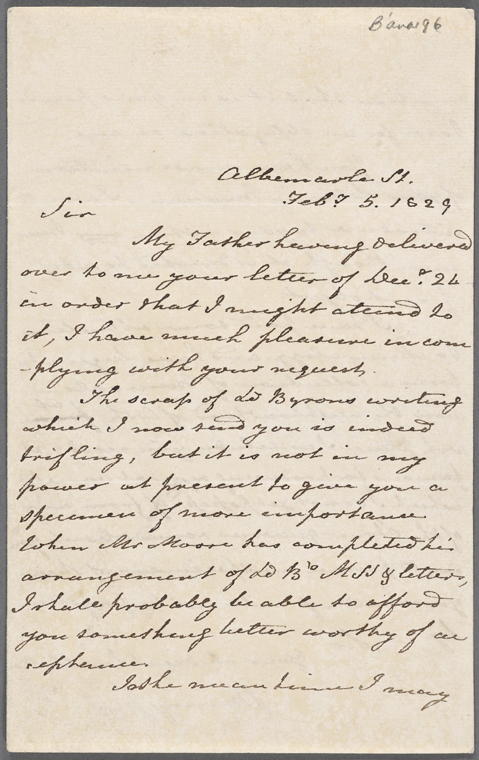 B'ana 96
Albemarle St.
Feby 5. 1829
Sir
My Father having delivered
over to me your letter of Decr. 24
in order that I might attend to
it, I have much pleasure in com
-plying with your request.
The scrap of Ld Byrons writing
which I now send you is indeed
trifling, but it is not in my
power at present to give you a
specimen of more importance
When Mr Moore has completed his
arrangement of Ld Bs MSS & letters,
I shall probably be able to afford
you something better worthy of ac
-ceptance.
In the mean time I may